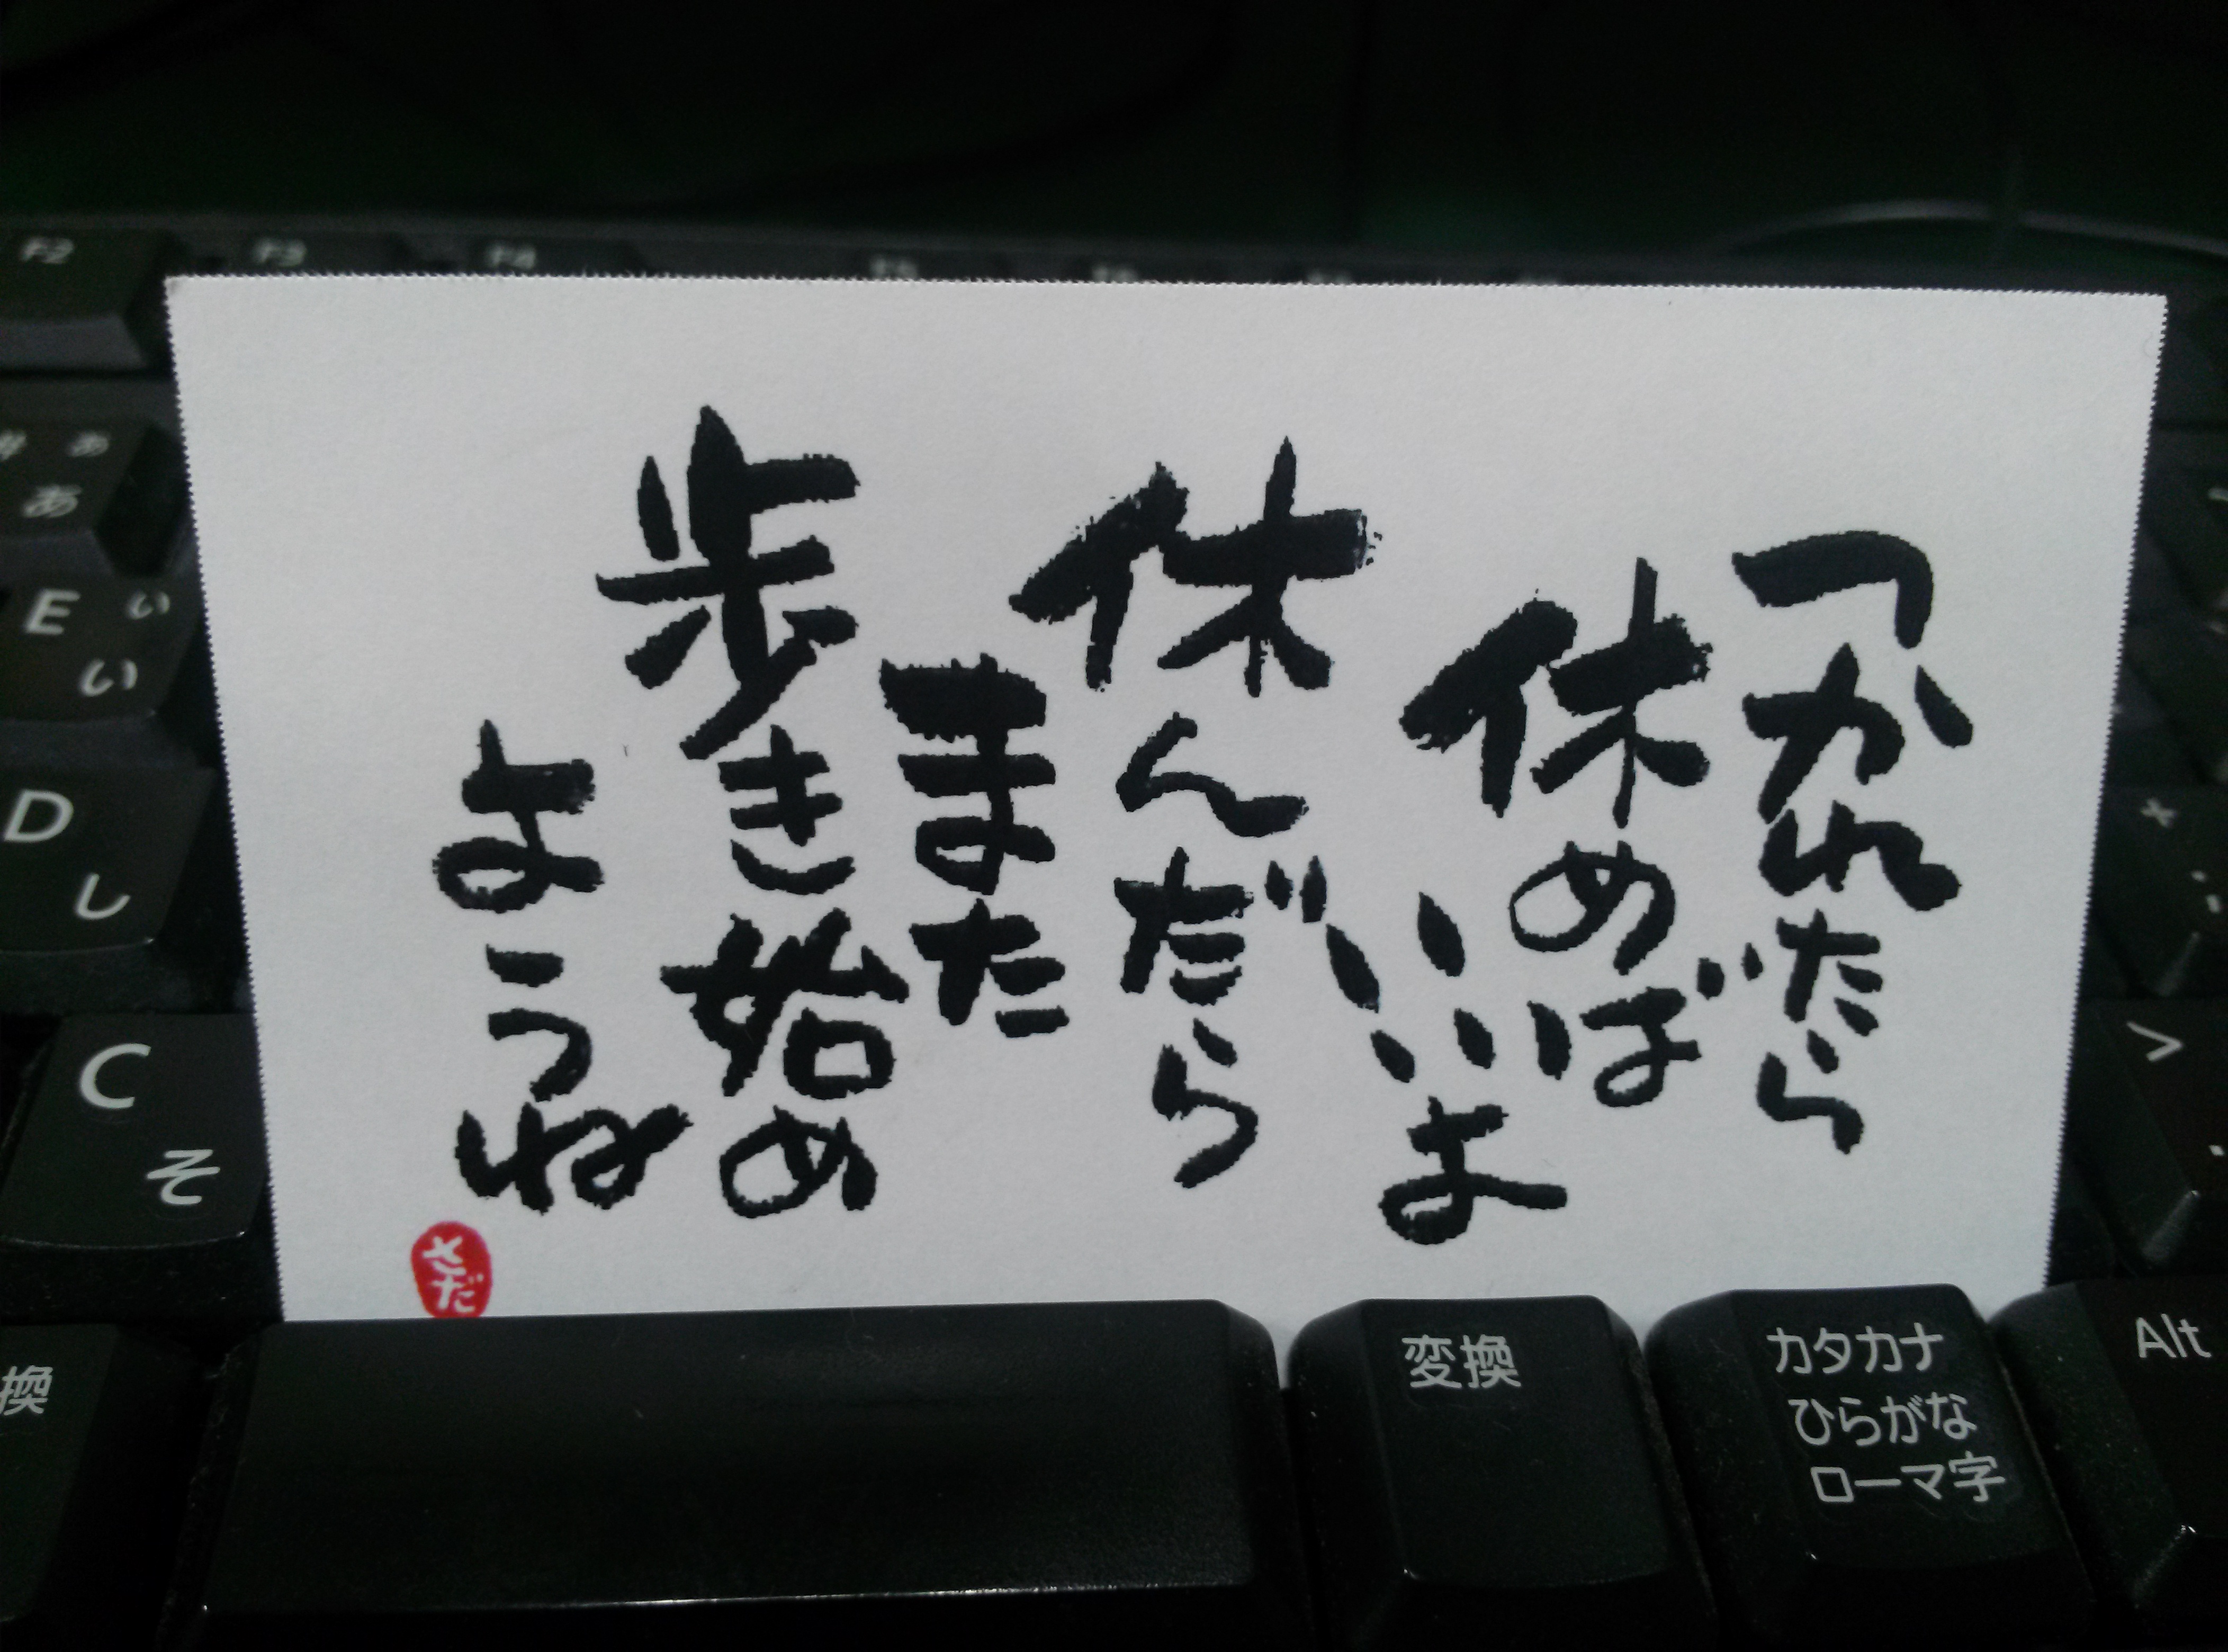 つかれたら
休めば
いいよ
休んだら
また
歩き始め
ようね
さだ
F2
F3
F4
あ
あ
E
ぃ
い
D
し
C
そ
換
変換
カタカナ
ひらがな
ローマ字
Alt
>